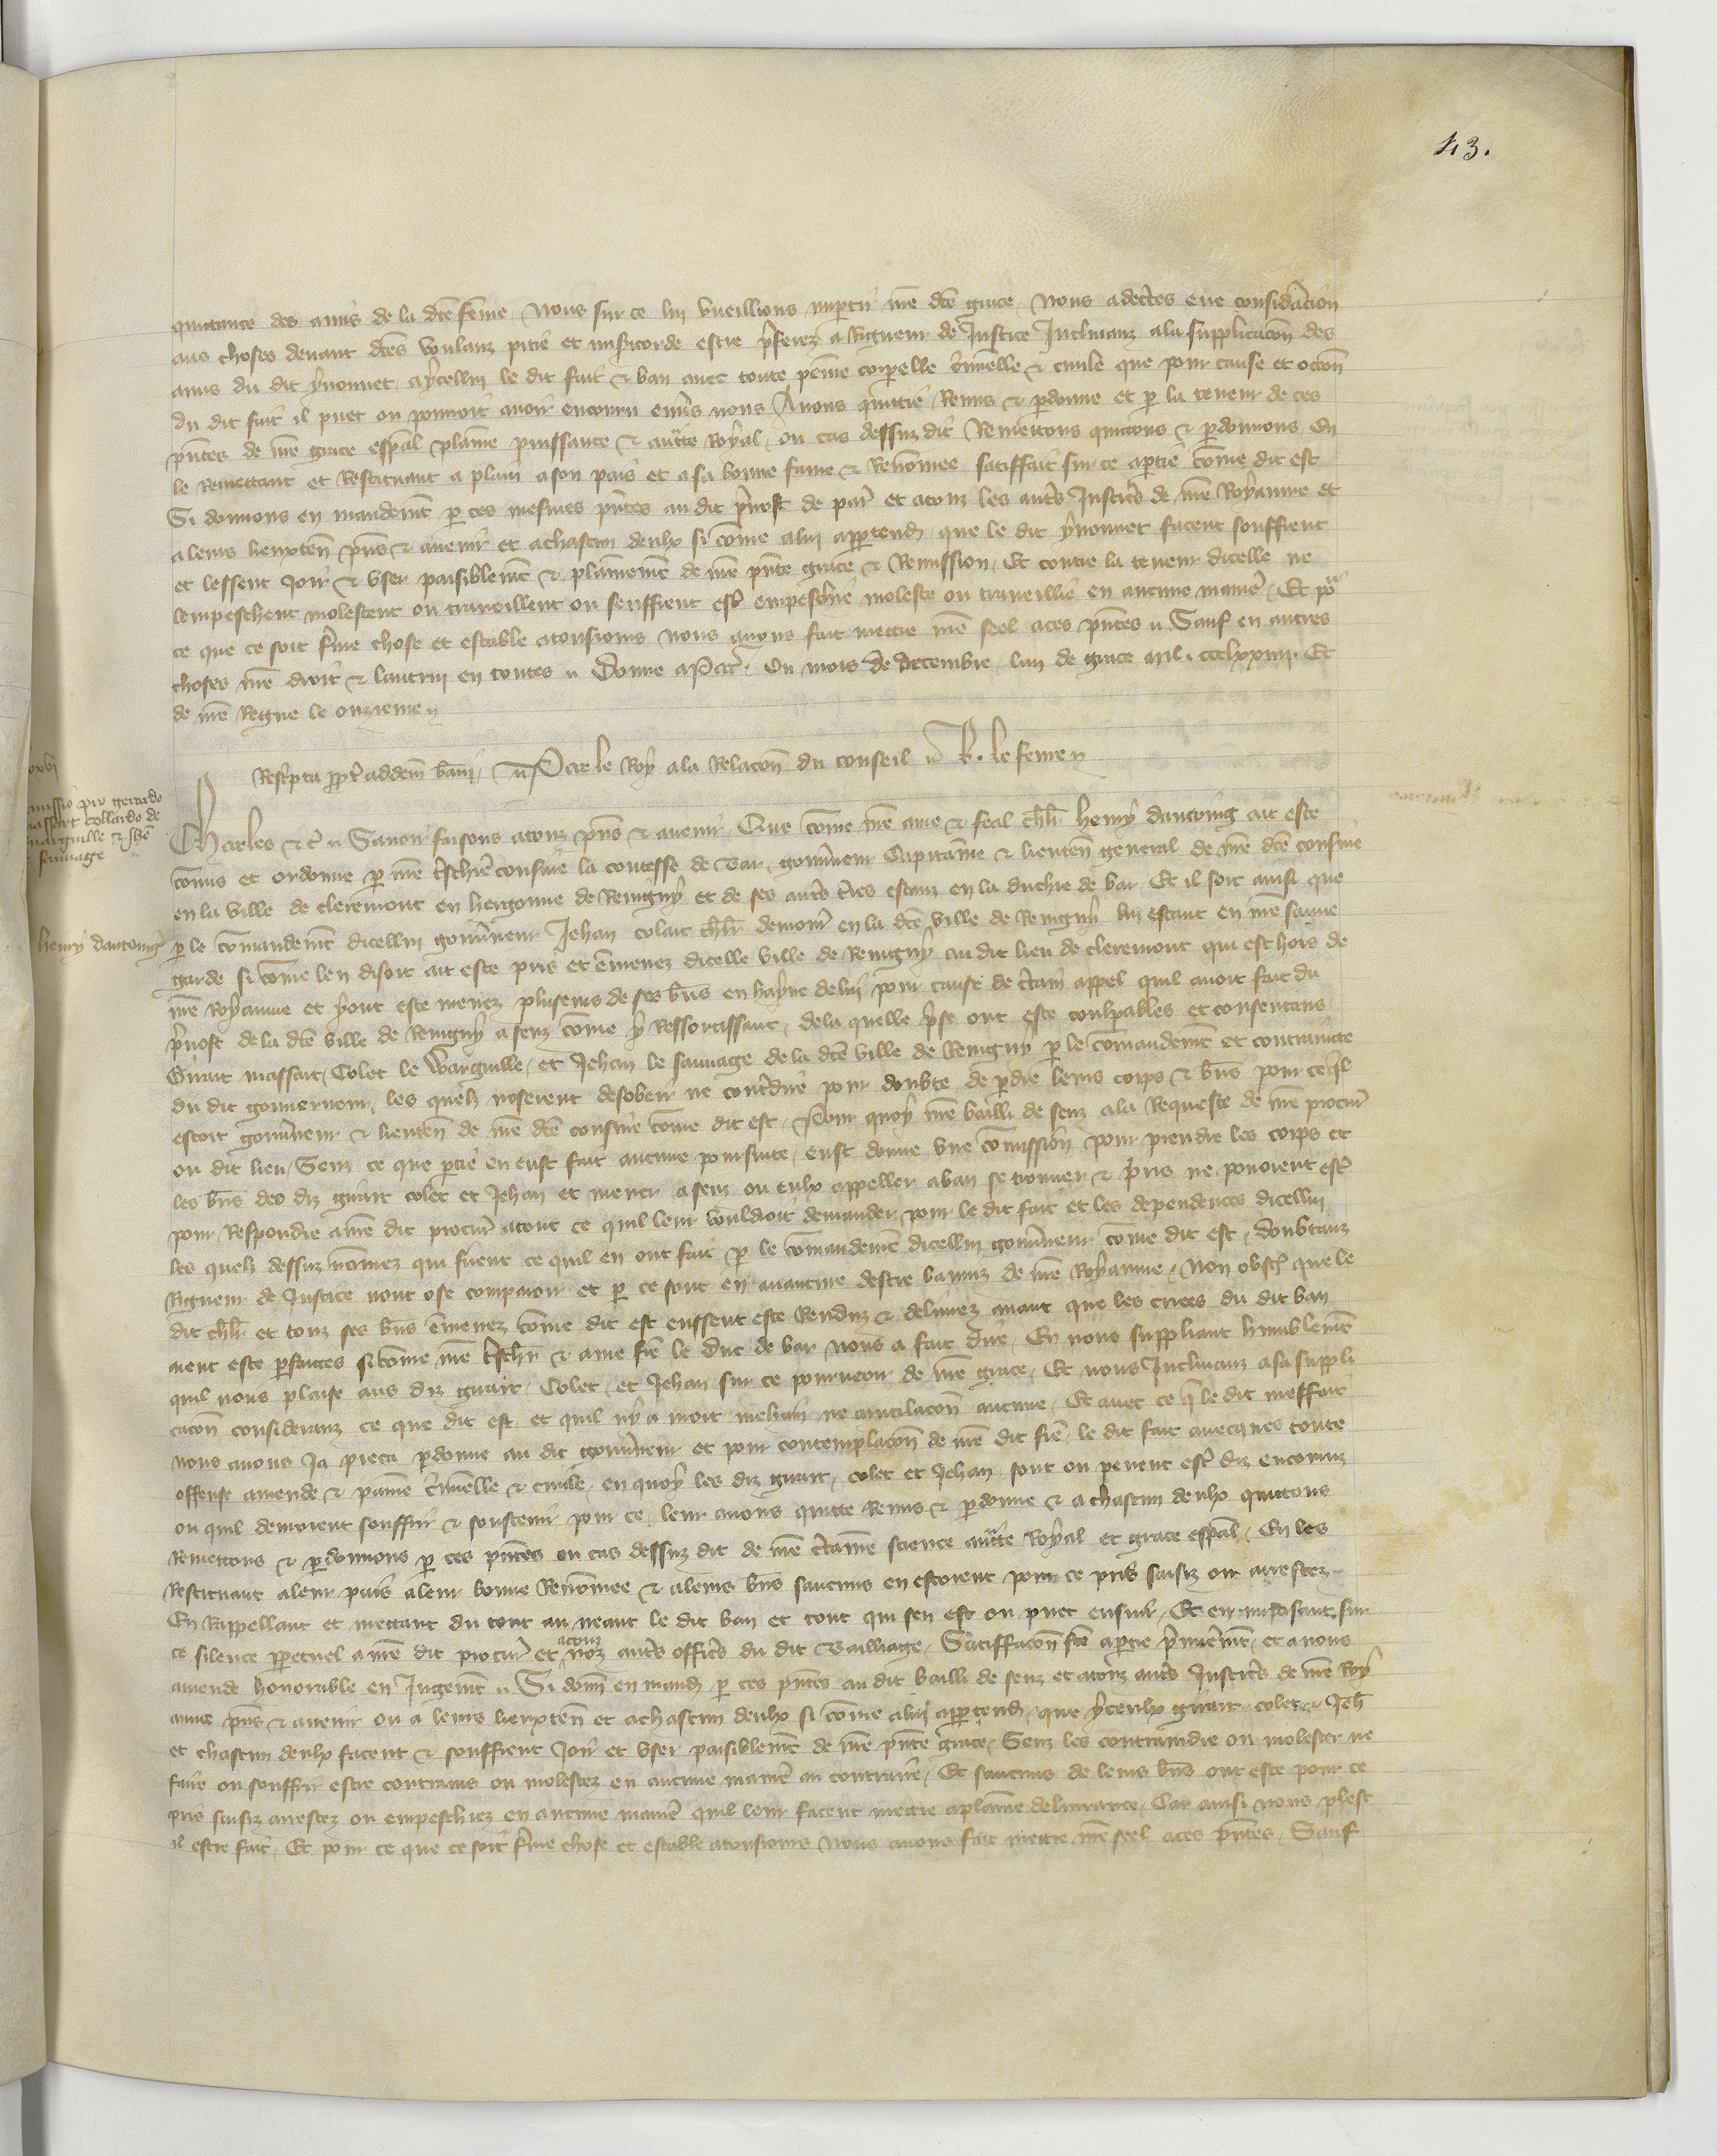 43.
quittance des amis de la dcē feme Nous sur ce lui vueillions impartir nrē dcē grace Nous adecertes eue consideracion
aus choses deuant dcēs voulanz pitie et misericorde estre preferez a Rigueur de Justice Inclinanz ala supplicacōn des
amis du dit yuonnet aycellui le dit fait & ban auec toute peine corporelle criminelle & ciuile que pour cause et occōn
du dit fait il puet ou pourroit auoir encouru enuers nous Auons quittie Remis & pardonne et par la teneur de ces
pntes de nrē grace espāl plaine puissance & auctte Royal ou cas dessuz dit Remettons quittons & pardonnons En
le Remettant et Restituant a plain a son pais et a sa bonne fame & Renommee satiffait sur ce a partie come dit est
Si donnons en mandemt par ces mesmes pntes au dit preuost de par et atouz les autres Justiciers de nrē Royaume et
aleurs lieuxten pns & auenir et achascun deulx si come alui appartendra que le dit yuonnet facent souffrent
et lessent Joir & vser paisiblemt & plainemt de nrē pnte grace & Remission Et contre la teneur dicelle ne
lempeschent molestent ou traueillent ou seuffrent estre empeschie moleste ou traueillie en aucune maniere Et por
ce que ce soit ferme chose et estable atousiours nous auons fait mettre nrē seel aces pntes Sauf en autres
choses nrē droit & lautrui en toutes Donne a Par ou mois de decembre lan de grace mil ccclxxiiii Et
de nrē Regne le onzieme
Rescripta propter addem bani Par le Roy ala Relacōn du conseil
Remissio pro gerardo
massart collardo de
warguille & Jhē
sauuage
Charles &c Sauoir faisons atouz pns & auenir Que come nrē ame & feal chlr henry dantoing ait este
comis et ordonne par nrē tschiere cousine la contesse de Bar gouuerneur Capitaine & lieuten general de nrē dcē cousine
en la ville de cleremont en hergonne de Reuigny et de ses autres terres estanz en la duchie de bar Et il soit ainsi que
henry dantoing
par le comandemt dicellui gouuerneur Jehan colart chlr demorant en la dcē ville de Reuigny lui estant en nrē sauue
garde si come len disoit ait este pris et emenez dicelle ville de Reuigny au dit lieu de cleremont qui est hors de
nrē Royaume et yont este menez pluseurs de ses biens en hayne de lui pour cause de certain appel quil auoit fait du
preuost de la dcē ville de Reuigny a senz come y Ressortissant de la quelle prise ont este coulpables et consentans
Girart massart Colet le Warguille et Jehan le sauuage de la dcē ville de Reuigny par le comandemt et contrainte
du dit gouuerneur les quelz noserent desobeir ne contredire pour doubte de perdre leurs corps & biens pour ce quil
estoit gouuerneur & lieuten de nrē dcē cousine come dit est Pour quoy nrē bailli de senz ala Requeste de nrē procur
ou dit lieu Senz ce que partie en eust fait aucune poursuite eust donne vne comission pour prendre les corps et
les biens des diz girart colet et Jehan et mener a senz ou eulx appeller a ban se trouuez & pris ne pouoient estre
pour Respondre a nrē dit procur atout ce quil leur vouldroit demander pour le dit fait et les dependences dicellui
les quelz dessuz nommez qui firent ce quil en ont fait par le comandemt dicellui gouuerneur come dit est doubtanz
Rigueur de Justice nont ose comparoir et par ce sont en auanture destre baniz de nrē Royaume Non obst que le
dit chlr et touz ses biens emenez come dit est eussent este Renduz & deliurez auant que les criees du dit ban
aient este parfaictes si come nrē tschier & ame frere le Duc de bar nous a fait dire En nous suppliant humblemt
quil nous plaise aus diz girart Colet et Jehan sur ce pourueoir de nrē grace Et nous Inclinanz a sa suppli
cacōn consideranz ce que dit est et quil ny a mort mehain ne mutilacōn aucune Et auec ce que le dit meffait
nous auons Ja pieca pardonne au dit gouuerneur et pour contemplacōn de nrē dit frere le dit fait auecques toute
offense amende & paine criminelle & ciuile en quoy les diz girart colet et Jehan sont ou peuent estre diz encouruz
ou quil deuroient souffrir & soustenir pour ce leur auons quitte Remis & pardonne & achascun deulx quittons
Remettons & pardonnons par ces pntes ou cas dessuz dit de nrē certaine science auctte Royal et grace espāl En les
Restituant aleur pais aleur bonne Renommee & aleurs biens saucuns en estoient pour ce pris saisiz ou arrestez
En Rappellant et mettant du tout au neant le dit ban et tout qui sen est ou puet ensuir Et en imposant sur
ce silence perpetuel a nrē dit procur et atouz noz autres officiers du dit Bailliage Satiffacōn fcē a partie premieremt et a nous
amende honorable en Jugemt Si donn en mand par ces pntes au dit bailli de senz et atouz autres Justiciers de nrē Roy
aume pns & auenir ou a leurs lieuxten et achascun deulx si come alui appartendra que yceulx girart colet & Jeh
et chascun deulx facent & souffrent Joir et vser paisiblemt de nrē pnte grace Senz les contraindre ou molester ne
faire ou souffrir estre contrains ou molestez en aucune maniere au contraire Et saucuns de leurs biens ont este pour ce
pris saisiz arrestez ou empeschiez en aucune maniere quil leur facent mettre aplaine deliurance Car ainsi nous plest
il estre fait Et pour ce que ce soit ferme chose et estable atousiours Nous auons fait mettre nrē seel aces pntes Sauf